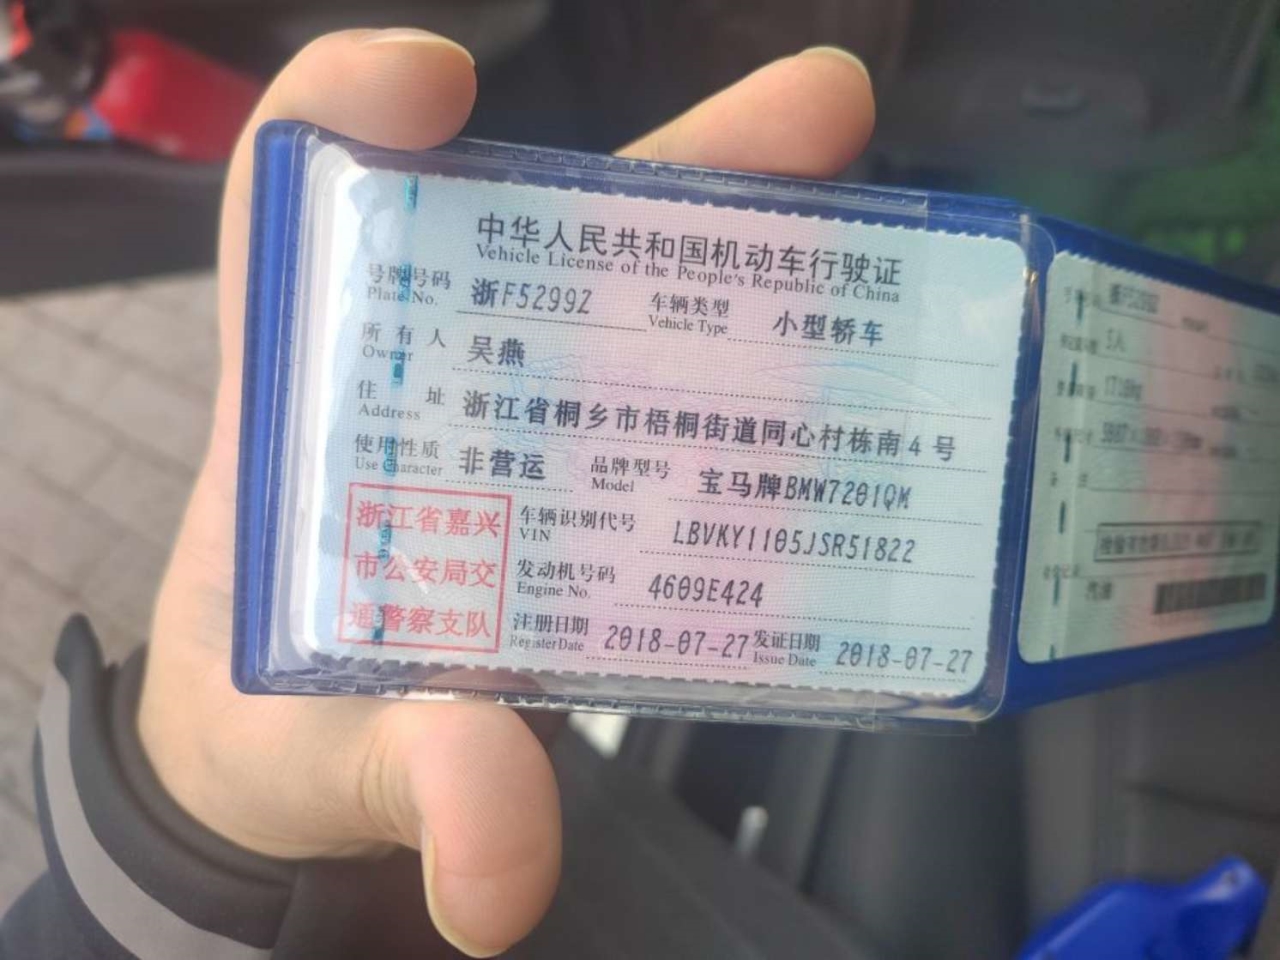 中华人民共和国机动车行驶证
Vehicle License of the People's Republic of China
号牌号码 浙F5299Z 车辆类型 小型轿车
Plate No. Vehicle Type
所有人 吴燕
Owner
住址 浙江省桐乡市梧桐街道同心村栋南4号
Address
使用性质 非营运 品牌型号 宝马牌BMW7201QM
Use Character Model
浙江省嘉兴
市公安局交
通警察支队
车辆识别代号 LBVKY1105JSR51822
VIN
发动机号码 4609E424
Engine No.
注册日期 2018-07-27 发证日期 2018-07-27
Register Date Issue Date
5人
汽油